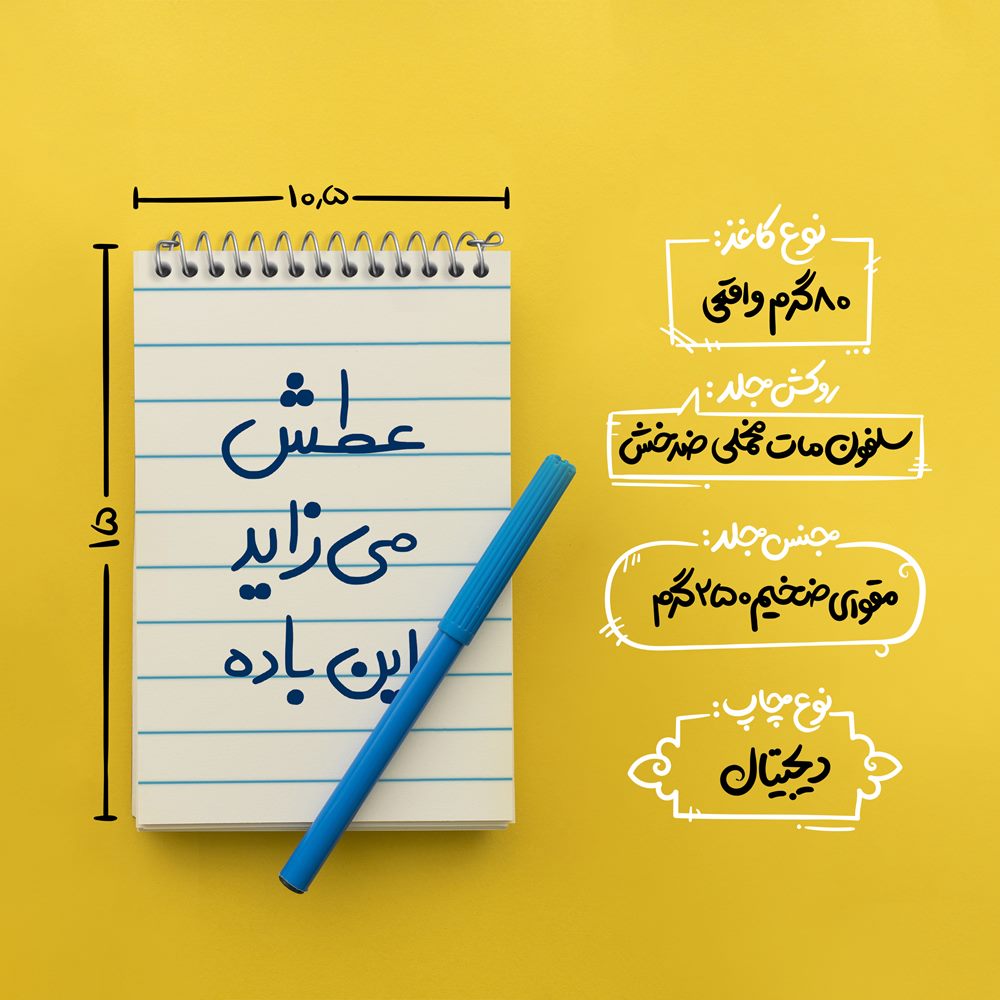 ۱۰٫۵
۱۵
عطش
می‌زاید
این باده
نوع کاغذ:
۸۰گرم واقعی
روکش جلد:
سلفون مات مخملی ضدخش
جنس جلد:
مقوای ضخیم ۲۵۰گرم
نوع چاپ:
دیجیتال